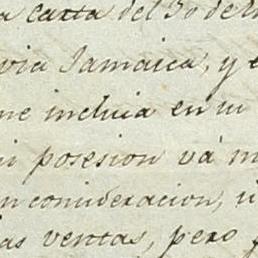 a carta del 30 de
via Jamaica, y e
me incluia en su
mi posesion va m
en consideracion, u
las ventas, pero